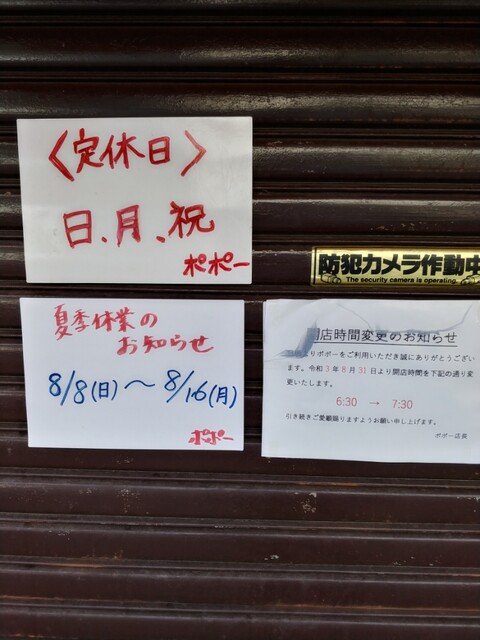 〈定休日〉
日、月、祝
ポポー
防犯カメラ作動中
The security camera is operating.
夏季休業の
お知らせ
8/8(日)～8/16(月)
ポポー
店時間変更のお知らせ
よりポポーをご利用いただき誠にありがとうござい
ます。令和3年8月31日より開店時間を下記の通り変
更いたします。
6:30 → 7:30
引き続きご愛顧賜りますようお願い申し上げます。
ポポー店長